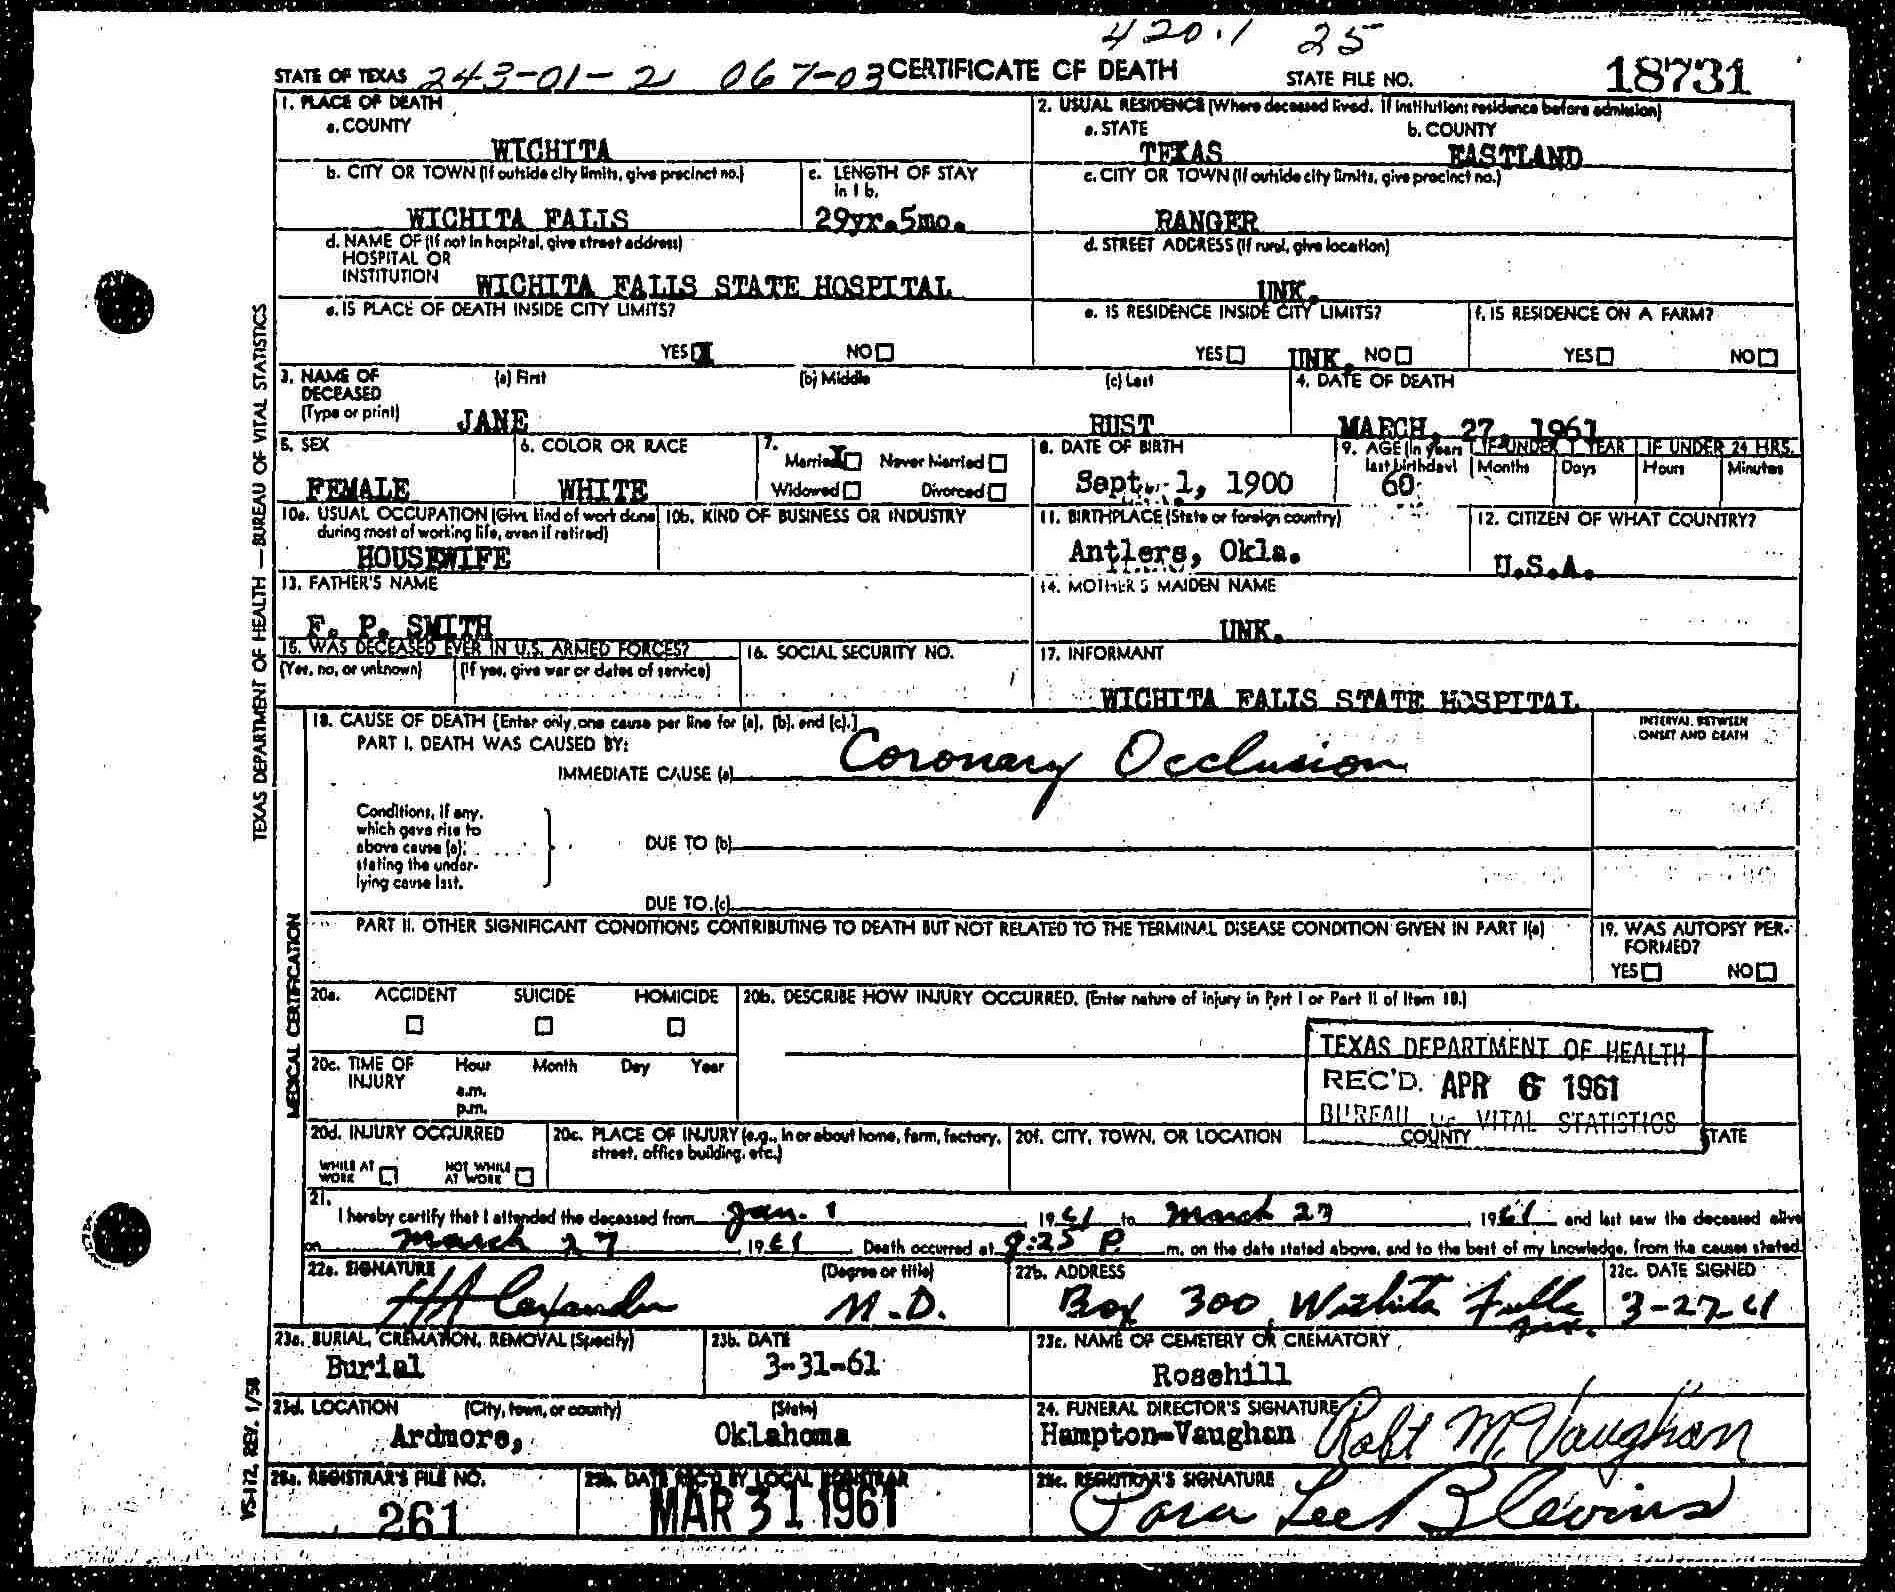 420.1 25
STATE OF TEXAS 243-01-2 067-03 CERTIFICATE OF DEATH STATE FILE NO. 18731
1. PLACE OF DEATH
a. COUNTY
WICHITA
2. USUAL RESIDENCE (Where deceased lived. If institution: residence before admission)
a. STATE b. COUNTY
TEXAS EASTLAND
b. CITY OR TOWN (If outside city limits, give precinct no.)
WICHITA FALLS
c. LENGTH OF STAY
in 1 b.
29yr.5mo.
c. CITY OR TOWN (If outside city limits, give precinct no.)
RANGER
d. NAME OF (If not in hospital, give street address)
HOSPITAL OR
INSTITUTION WICHITA FALLS STATE HOSPITAL
d. STREET ADDRESS (If rural, give location)
UNK.
e. IS PLACE OF DEATH INSIDE CITY LIMITS?
YES X NO
e. IS RESIDENCE INSIDE CITY LIMITS?
YES UNK. NO
f. IS RESIDENCE ON A FARM?
YES NO
3. NAME OF
DECEASED
(Type or print)
(a) First (b) Middle (c) Last
JANE RUST
4. DATE OF DEATH
MARCH, 27, 1961
5. SEX
FEMALE
6. COLOR OR RACE
WHITE
7.
Married X Never Married
Widowed Divorced
8. DATE OF BIRTH
Sept. 1, 1900
9. AGE (In years
last birthday)
60
IF UNDER 1 YEAR IF UNDER 24 HRS.
Months Days Hours Minutes
10a. USUAL OCCUPATION (Give kind of work done
during most of working life, even if retired)
HOUSEWIFE
10b. KIND OF BUSINESS OR INDUSTRY
11. BIRTHPLACE (State or foreign country)
Antlers, Okla.
12. CITIZEN OF WHAT COUNTRY?
U.S.A.
13. FATHER'S NAME
F. P. SMITH
14. MOTHER'S MAIDEN NAME
UNK.
15. WAS DECEASED EVER IN U.S. ARMED FORCES?
(Yes, no, or unknown) (If yes, give war or dates of service)
16. SOCIAL SECURITY NO.
17. INFORMANT
WICHITA FALLS STATE HOSPITAL
18. CAUSE OF DEATH [Enter only one cause per line for (a), (b), and (c).]
PART I. DEATH WAS CAUSED BY:
IMMEDIATE CAUSE (a) Coronary Occlusion
INTERVAL BETWEEN
ONSET AND DEATH
Conditions, if any,
which gave rise to
above cause (a),
stating the under-
lying cause last.
DUE TO (b)
DUE TO (c)
PART II. OTHER SIGNIFICANT CONDITIONS CONTRIBUTING TO DEATH BUT NOT RELATED TO THE TERMINAL DISEASE CONDITION GIVEN IN PART I(a)
19. WAS AUTOPSY PER-
FORMED?
YES NO
20a. ACCIDENT SUICIDE HOMICIDE
20b. DESCRIBE HOW INJURY OCCURRED. (Enter nature of injury in Part I or Part II of Item 18.)
20c. TIME OF
INJURY
Hour Month Day Year
a.m.
p.m.
TEXAS DEPARTMENT OF HEALTH
REC'D. APR 6 1961
BUREAU OF VITAL STATISTICS
20d. INJURY OCCURRED
WHILE AT
WORK
NOT WHILE
AT WORK
20e. PLACE OF INJURY (e.g., in or about home, farm, factory,
street, office building, etc.)
20f. CITY, TOWN, OR LOCATION COUNTY STATE
21.
I hereby certify that I attended the deceased from Jan. 1 1961 to March 27, 1961 and last saw the deceased alive
on March 27 1961 Death occurred at 9:25 P. m. on the date stated above, and to the best of my knowledge, from the causes stated.
22a. SIGNATURE (Degree or title)
H A Lexander M.D.
22b. ADDRESS
Box 300 Wichita Falls Tex.
22c. DATE SIGNED
3-27-61
23a. BURIAL, CREMATION, REMOVAL (Specify)
Burial
23b. DATE
3-31-61
23c. NAME OF CEMETERY OR CREMATORY
Rosehill
23d. LOCATION (City, town, or county) (State)
Ardmore, Oklahoma
24. FUNERAL DIRECTOR'S SIGNATURE
Hampton-Vaughan Robt M. Vaughan
25a. REGISTRAR'S FILE NO.
261
25b. DATE REC'D BY LOCAL REGISTRAR
MAR 31 1961
25c. REGISTRAR'S SIGNATURE
Lee Blevins
TEXAS DEPARTMENT OF HEALTH — BUREAU OF VITAL STATISTICS
MEDICAL CERTIFICATION
VS-112, REV. 1/58